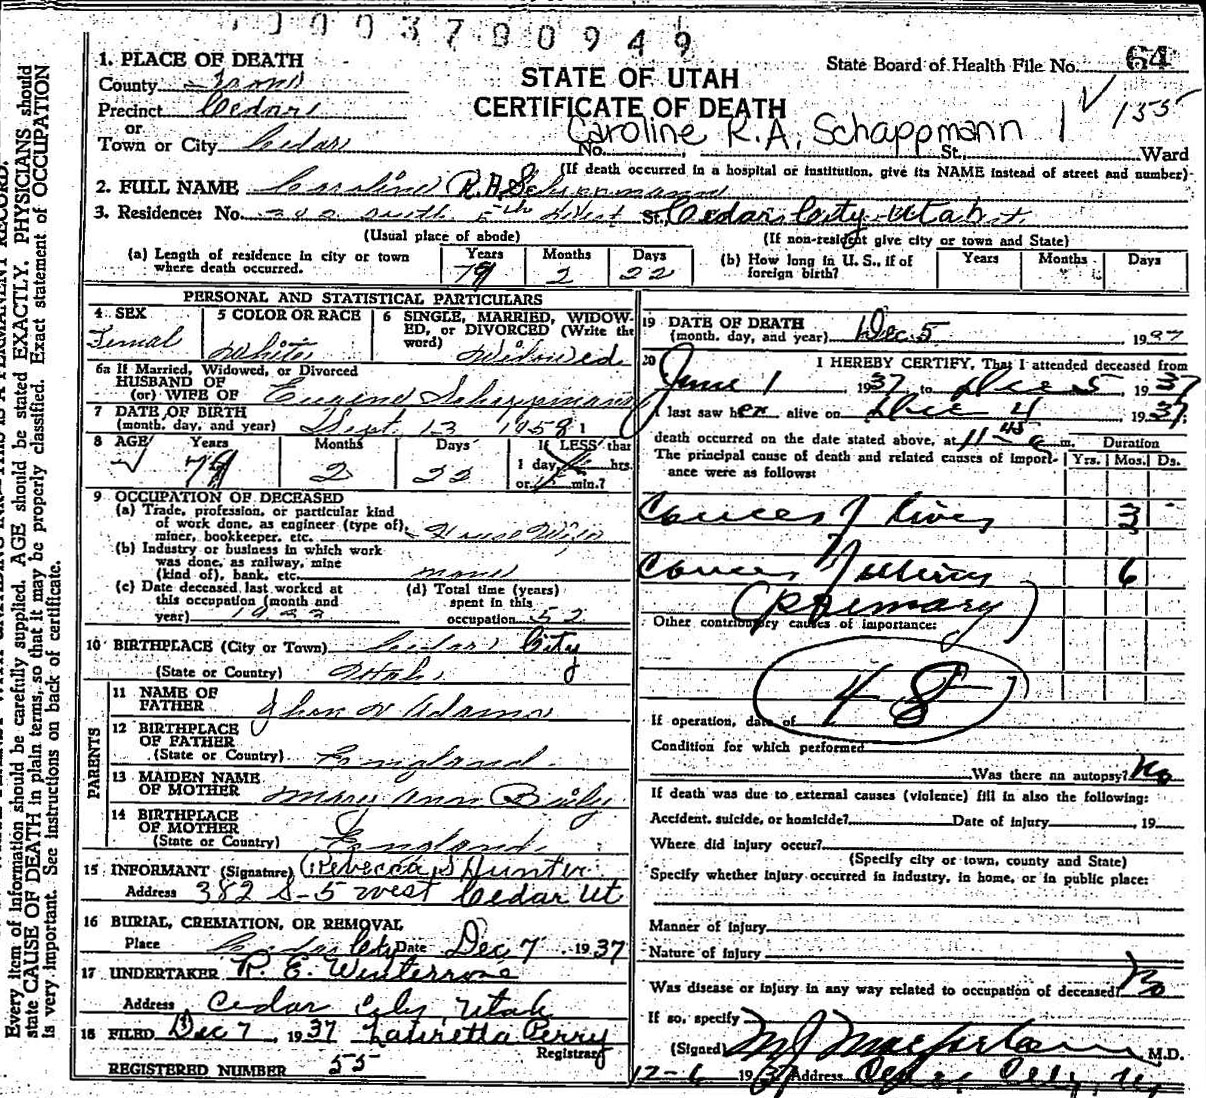 0003700949
1. PLACE OF DEATH
County
Precinct Cedar
or
Town or City Cedar
STATE OF UTAH
CERTIFICATE OF DEATH
State Board of Health File No. 64
155
Caroline R.A. Schappmann 1
No. St. Ward
(If death occurred in a hospital or institution, give its NAME instead of street and number)
2. FULL NAME Caroline R.A.
3. Residence: No. 382 South 5th West St. Cedar City Utah
(Usual place of abode) (If non-resident give city or town and State)
(a) Length of residence in city or town where death occurred. Years 79 Months 2 Days 22
(b) How long in U. S., if of foreign birth? Years Months Days
PERSONAL AND STATISTICAL PARTICULARS
4 SEX Femal
5 COLOR OR RACE White
6 SINGLE, MARRIED, WIDOWED, or DIVORCED (Write the word) Widowed
6a If Married, Widowed, or Divorced
HUSBAND OF
(or) WIFE OF Eugene
7 DATE OF BIRTH
(month, day, and year) Sept 13
8 AGE Years 79 Months 2 Days 22 If LESS than 1 day, hrs. or min.?
9 OCCUPATION OF DECEASED
(a) Trade, profession, or particular kind of work done, as engineer (type of), miner, bookkeeper, etc. House Wife
(b) Industry or business in which work was done, as railway, mine (kind of), bank, etc.
(c) Date deceased last worked at this occupation (month and year)
(d) Total time (years) spent in this occupation 52
10 BIRTHPLACE (City or Town) Cedar City
(State or Country) Utah
PARENTS
11 NAME OF FATHER Adams
12 BIRTHPLACE OF FATHER
(State or Country) England
13 MAIDEN NAME OF MOTHER Mary Ann
14 BIRTHPLACE OF MOTHER
(State or Country) England
15 INFORMANT (Signature) Rebecca S Hunter
Address 382 S-5 West Cedar Ut
16 BURIAL, CREMATION, OR REMOVAL
Place Cedar City Date Dec 7 1937
17 UNDERTAKER R. E. Winterrose
Address Cedar City, Utah
18 FILED Dec 7, 1937 Lauretta Perry
Registrar
REGISTERED NUMBER 55
19 DATE OF DEATH
(month, day, and year) Dec. 5 1937
20 I HEREBY CERTIFY, That I attended deceased from
June 1 1937 to Dec 5, 1937
I last saw her alive on Dec 4 1937
death occurred on the date stated above, at 11-45 a m.
Duration
The principal cause of death and related causes of importance were as follows: Yrs. Mos. Ds.
Cancer of Liver 3
Cancer of 6
(Primary)
Other contributory causes of importance:
48
If operation, date of
Condition for which performed
Was there an autopsy? No
If death was due to external causes (violence) fill in also the following:
Accident, suicide, or homicide? Date of injury , 19
Where did injury occur?
(Specify city or town, county and State)
Specify whether injury occurred in industry, in home, or in public place:
Manner of injury
Nature of injury
Was disease or injury in any way related to occupation of deceased? No
If so, specify
(Signed) M J Macfarlane M.D.
12-6 1937 Address Cedar City, Ut
Every item of information should be carefully supplied. AGE should be stated EXACTLY. PHYSICIANS should
state CAUSE OF DEATH in plain terms, so that it may be properly classified. Exact statement of OCCUPATION
is very important. See instructions on back of certificate.